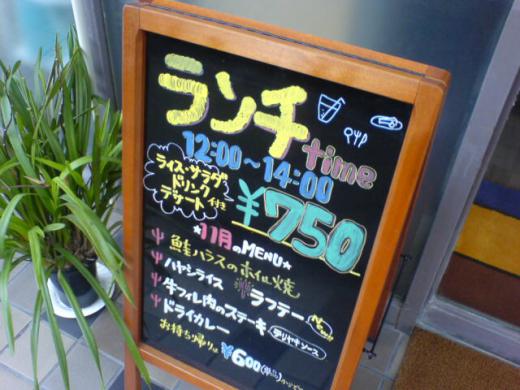 ランチ
time
12:00〜14:00
ライス・サラダ
ドリンク
デザート付き
¥750
★11月のMENU★
鮭ハラスのホイル焼
ハヤシライス
ラフテー New!!
牛フィレ肉のステーキ テリヤキソース
ドライカレー
お持ち帰りは ¥600